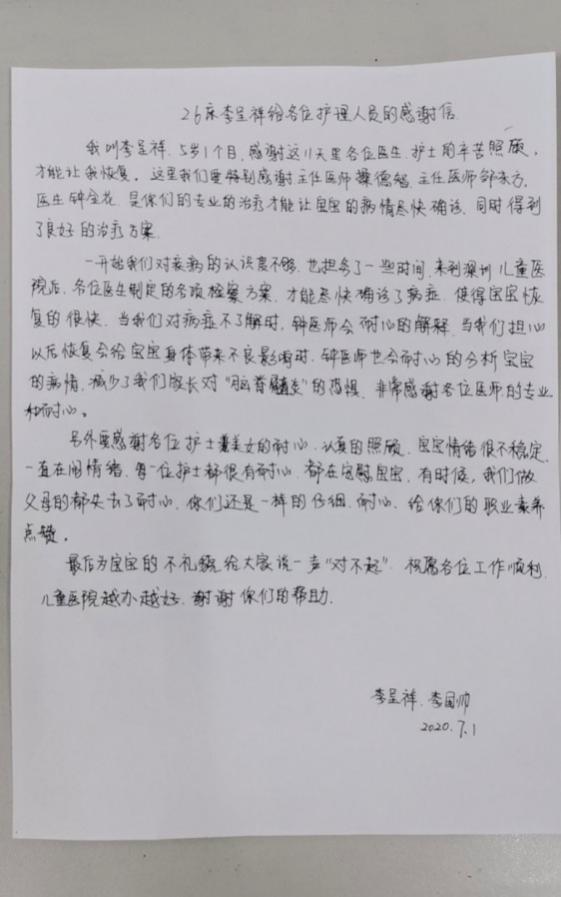 26床李呈祥给各位护理人员的感谢信
我叫李呈祥、5岁1个月、感谢这11天里各位医生、护士的辛苦照顾,
才能让我恢复。这里我们要特别感谢主任医师操德智、主任医师邹东方、
医生钟金花、是你们的专业的治疗才能让宝宝的病情尽快确诊、同时得到
了良好的治疗方案.
一开始我们对疾病的认识度不够、也担务了一些时间、来到深圳儿童医
院后、各位医生制定的各项检察方案、才能尽快确诊了病症、使得宝宝恢
复的很快、当我们对病症不了解时、钟医师会耐心的解释、当我们担心
以后恢复会给宝宝身体带来不良影响时、钟医师也会耐心的分析宝宝
的病情、减少了我们家长对“脑脊髓炎”的恐惧、非常感谢各位医师的专业
和耐心。
另外要感谢各位护士美女的耐心、认真的照顾、宝宝情绪很不稳定、
一直在闹情绪、每一位护士都很有耐心、都在安慰宝宝、有时候、我们做
父母的都失去了耐心、你们还是一样的仔细、耐心、给你们的职业素养
点赞。
最后为宝宝的不礼貌给大家说一声“对不起”、祝愿各位工作顺利、
儿童医院越办越好、谢谢你们的帮助.
李呈祥、李国帅
2020.7.1